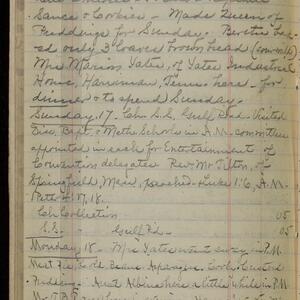 Sauce & Cookies - Made Queen of
Puddings for Sunday. Bertie bak-
ed only 3 loaves brown bread
Mrs Marion Yates, of Yates Industrial
Home, Harriman, Tenn. here for
dinner & to spend Sunday.
Sunday, 17. Coh. S.S. Gulf Rd. Visited
Bapt. & Meth. Schools in A.M. Committee
appointed in each for Entertainment of
Convention delegates Rev. Mr Tilton, of
Springfield, Mass, preached - Luke 1:6, A.M.
Peter 4:17, 18.
Coh. Collection 05
S.S. - Gulf Rd. 05
Monday, 18. Mrs Yates went away in P.M.
Meat Pie, Beans, Asparagus, Custard
Pudding - here a little while in P.M.